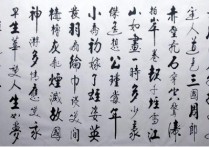 人道是三國周郎
赤壁亂石穿空驚濤
拍岸卷起千堆雪江
山如畫一時多少豪
傑遙想公瑾當年
小喬初嫁了雄姿英
發羽扇綸巾談笑間
檣櫓灰飛煙滅故國
神遊多情應笑我
早生華髮人生如夢